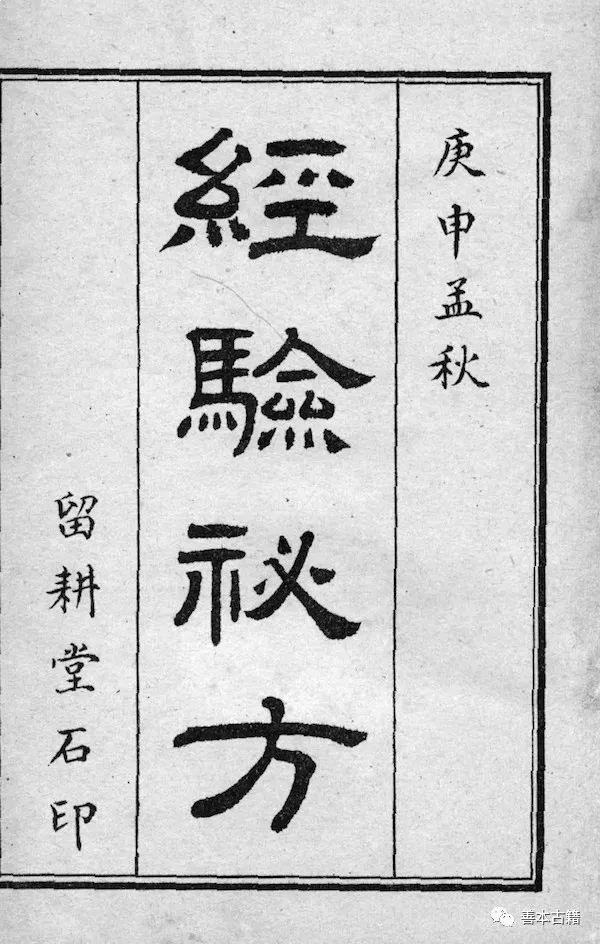 庚申孟秋
經驗祕方
留耕堂石印
善本古籍